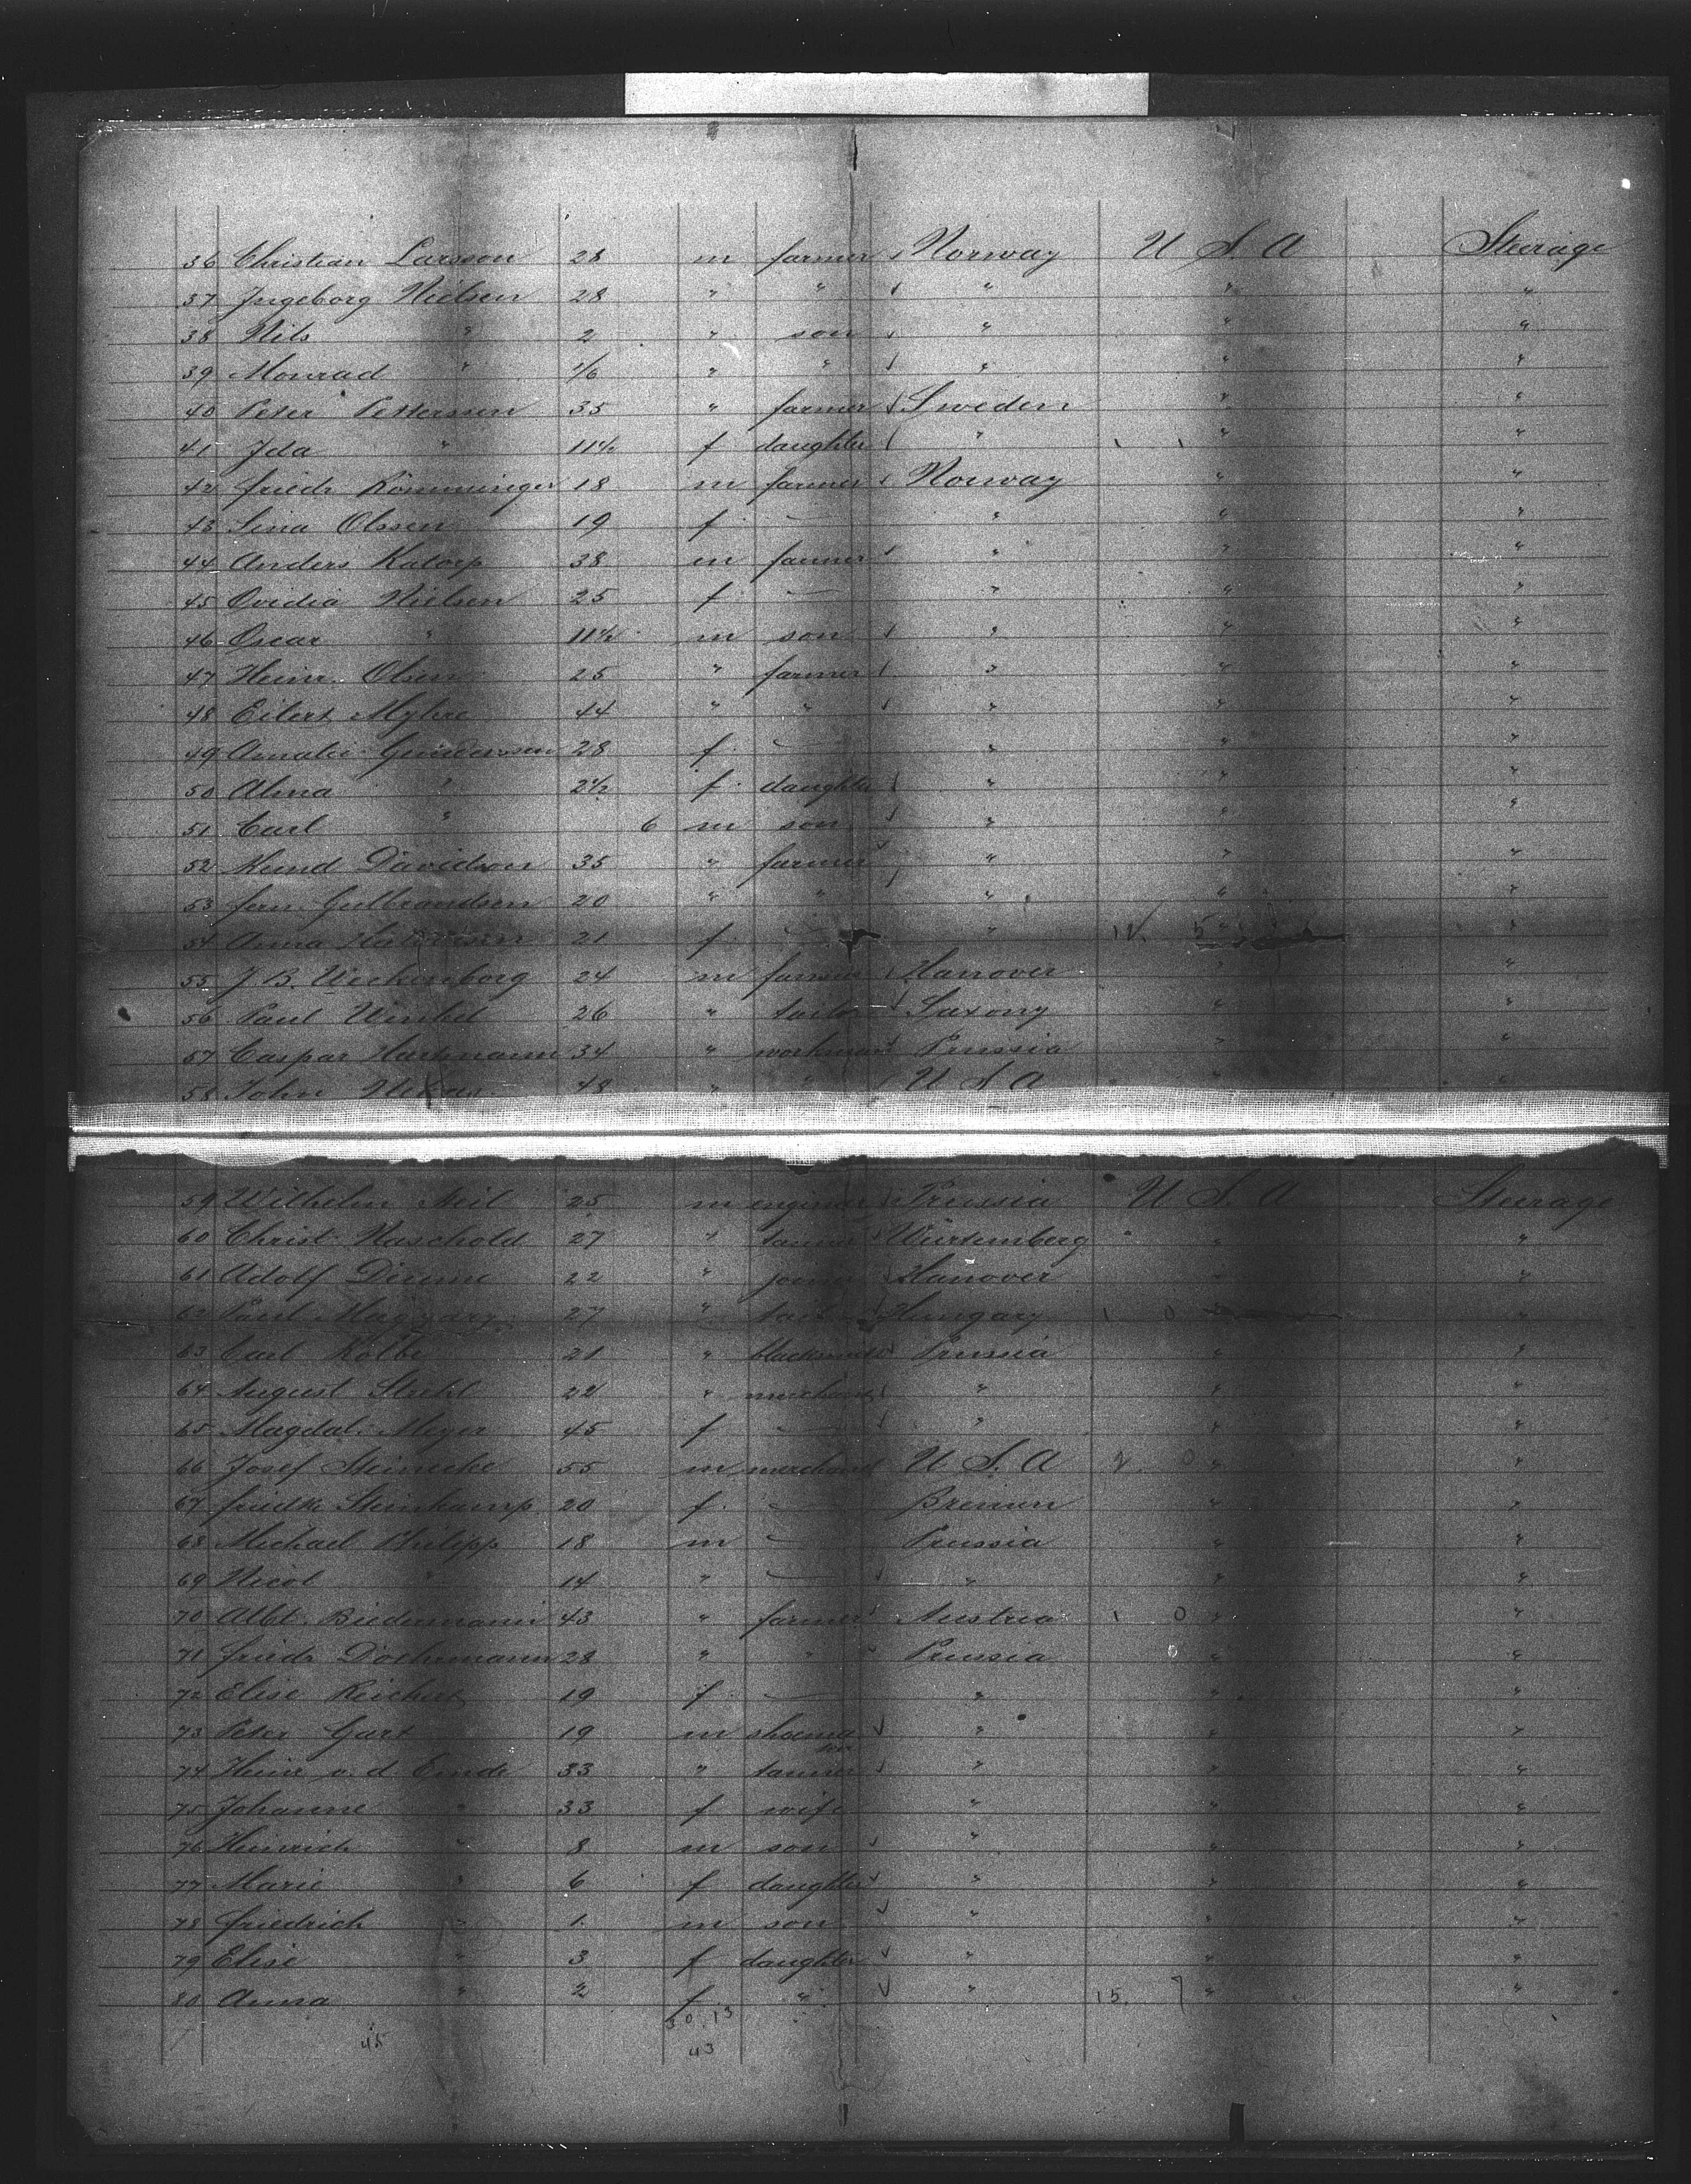 36 Christian Larsson 28 m farmer Norway U S. A Steerage
37 Ingeborg Nielsen 28 " " " " "
38 Nils " 2 " son " " "
39 Monrad " 1/6 " " " " "
40 Peter Petterssen 35 " farmer Sweden " "
41 Ida " 11 1/2 f daughter " " "
42 Friedr Römminger 18 m farmer Norway " "
43 Lina Olssen 19 f — " " "
44 Anders Katorp 38 m farmer " " "
45 Ovidia Nielsen 25 f — " " "
46 Oscar " 11 1/2 m son " " "
47 Heinr. Olsen 25 " farmer " " "
48 Eilert Myhre 44 " " " " "
49 Amalie Gundersen 28 f — " " "
50 Alma " 2 1/2 f daughter " " "
51 Carl " 6 m son " " "
52 Davidson 35 " farmer " " "
53 Gulbrandsen 20 " " " " "
54 Anna 21 f — " 11. 5 " "
55 J. B. 24 m farmer Hanover " "
56 Paul Winkel 26 " tailor Saxony " "
57 Caspar Hartmann 34 " workman Prussia " "
58 John 48 " " U S A " "
59 Wilhelm 25 m engineer Prussia U S. A Steerage
60 Christ. Naschold 27 " tanner Würtemberg " "
61 Adolf 22 " joiner Hanover " "
62 Paul Magyary 27 " Hungary 1 0 " "
63 Carl Kolbe 21 " blacksmith Prussia " "
64 August Stuhl 22 " merchant " " "
65 Magdal. Meyer 45 f — " " "
66 Josef Steinecke 55 m merchant U S. A 2. 0 " "
67 Friedke Steinkamp 20 f. — Bremen " "
68 Michael Philipp 18 m — Prussia " "
69 Nicol " 14 " — " " "
70 Albt. Biedermann 43 " farmer Austria 1 0 " "
71 Friedr Döhrmann 28 " " Prussia " "
72 Elise Reichert 19 f — " " "
73 Peter Gart 19 m shoema " " "
ker
74 Heinr v. d. Emde 33 " tanner " " "
75 Johanne " 33 f wife " " "
76 Heinrich " 8 m son " " "
77 Marie " 6 f daughter " " "
78 Friedrich " 1 m son " " "
79 Elise " 3 f daughter " " "
80 Anna " 2 f " " 15. 7 " "
30.13
45 43